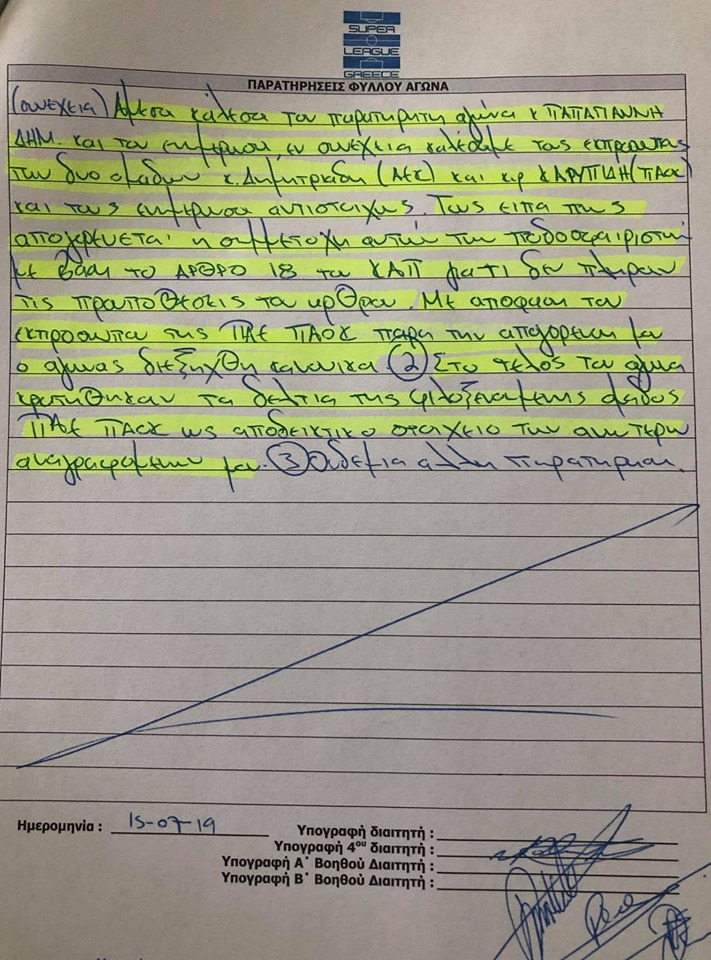 SUPER
LEAGUE
GREECE
ΠΑΡΑΤΗΡΗΣΕΙΣ ΦΥΛΛΟΥ ΑΓΩΝΑ
(συνεχεια) Αμεσα καλεσα τον παρατηρητη αγωνα κ ΠΑΠΑΓΙΑΝΝΗ
ΔΗΜ. και τον ενημερωσα, εν συνεχεια καλεσαμε τους εκπροσωπους
των δυο ομαδων κ. Δημητριαδη (ΑΕΚ) και κρ ΚΑΡΥΠΙΔΗ (ΠΑΟΚ)
και τους ενημερωσα αντιστοιχως. Τους ειπα πως
απαγορευεται η συμμετοχη αυτων των ποδοσφαιριστων
με βαση το ΑΡΘΡΟ 18 του ΚΑΠ γιατι δεν πληρουν
τις προυποθεσεις του αρθρου. Με αποφαση του
εκπροσωπου της ΠΑΕ ΠΑΟΚ παρα την απαγορευση μου
ο αγωνας διεξηχθη κανονικα. (2) Στο τελος του αγωνα
κρατηθηκαν τα δελτια της φιλοξενουμενης ομαδος
ΠΑΕ ΠΑΟΚ ως αποδεικτικο στοιχειο των ανωτερω
αναγραφομενων μου. (3) Ουδεμια αλλη παρατηρηση.
Ημερομηνία : 15-07-19
Υπογραφή διαιτητή :
Υπογραφή 4ου διαιτητή :
Υπογραφή Α΄ Βοηθού Διαιτητή :
Υπογραφή Β΄ Βοηθού Διαιτητή :